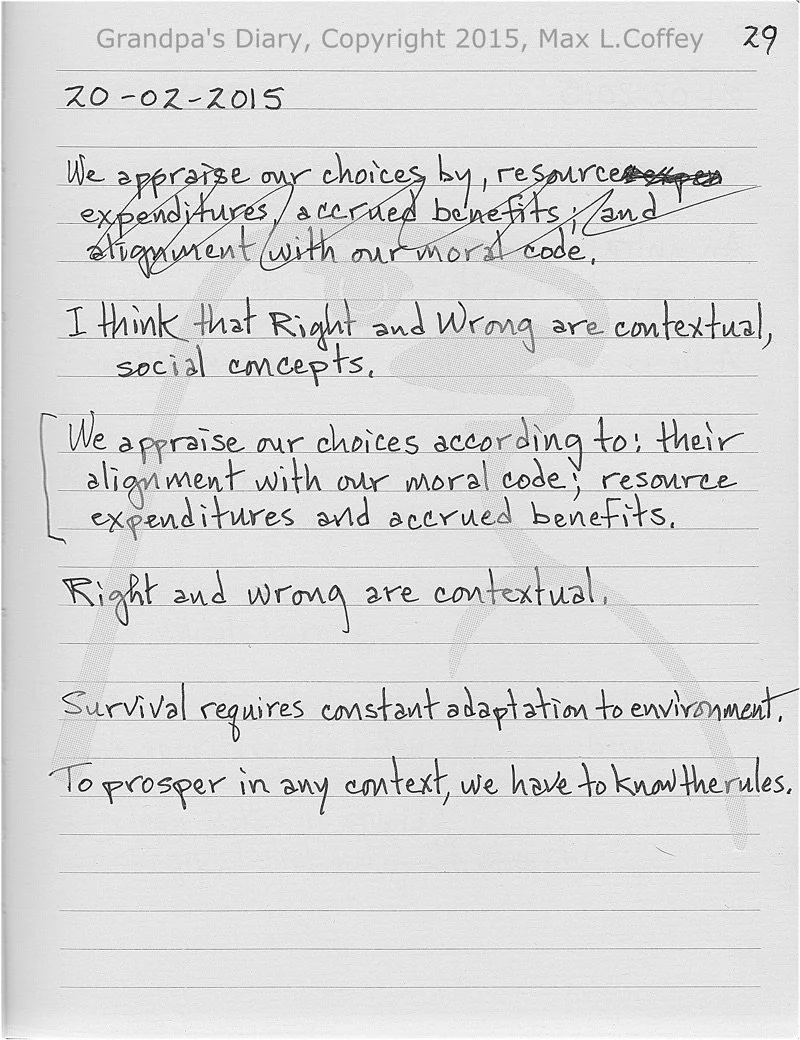 Grandpa's Diary, Copyright 2015, Max L.Coffey
29
20-02-2015
We appraise our choices by, resource
expenditures, accrued benefits; and
alignment with our moral code.
I think that Right and Wrong are contextual,
social concepts.
We appraise our choices according to: their
alignment with our moral code; resource
expenditures and accrued benefits.
Right and wrong are contextual.
Survival requires constant adaptation to environment.
To prosper in any context, we have to know the rules.